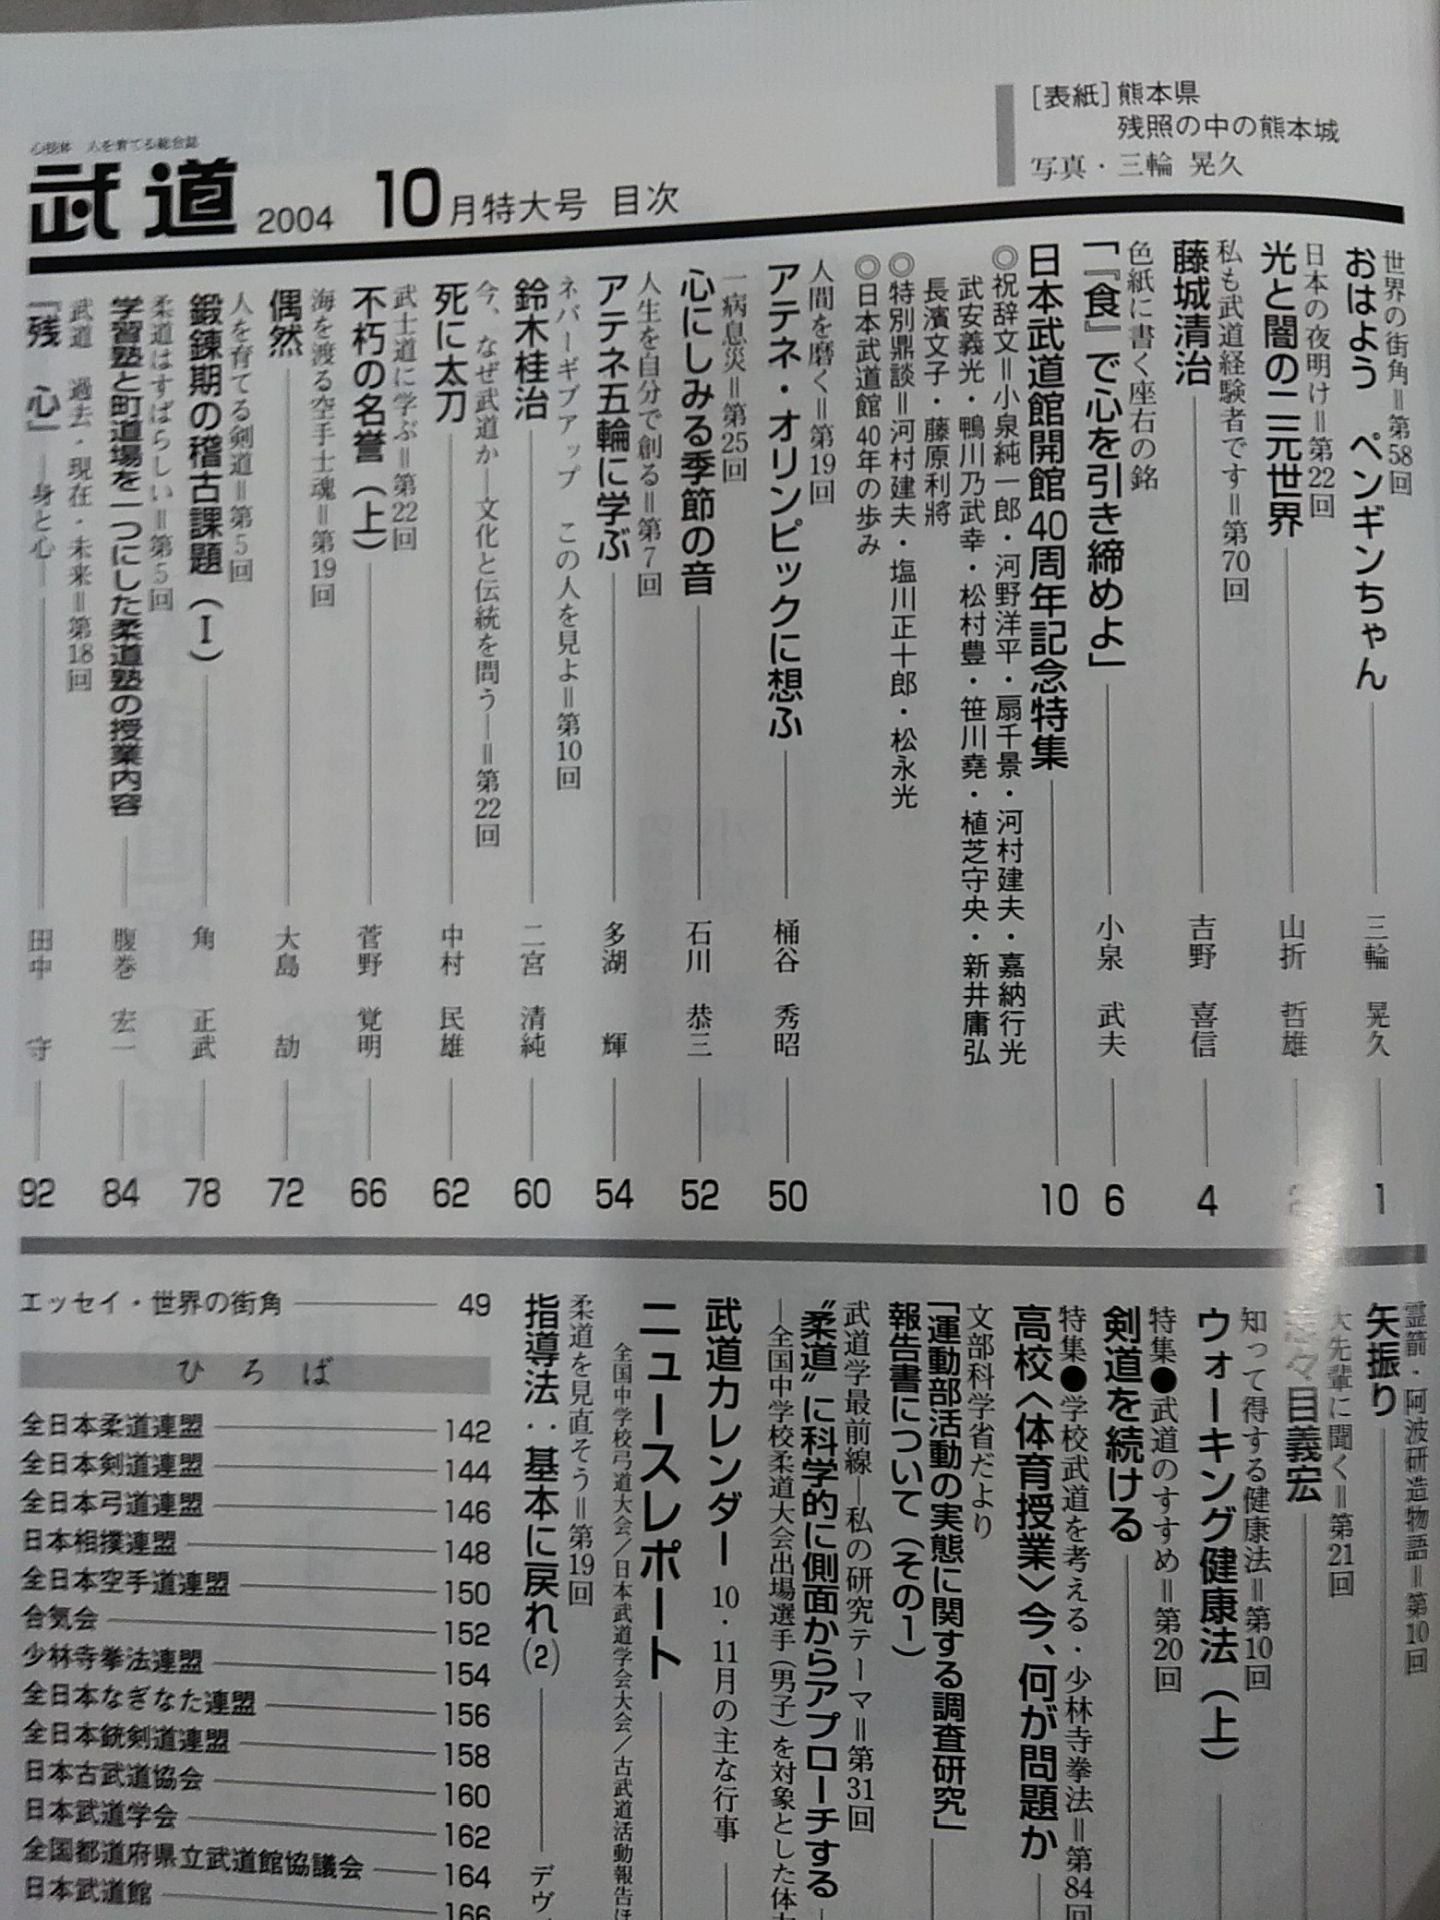 心技体 人を育てる総合誌
武道 2004 10月特大号 目次
[表紙]熊本県
残照の中の熊本城
写真・三輪 晃久
世界の街角=第58回
おはよう ペンギンちゃん 三輪 晃久 1
日本の夜明け=第22回
光と闇の二元世界 山折 哲雄
私も武道経験者です=第70回
藤城清治 吉野 喜信 4
色紙に書く座右の銘
「『食』で心を引き締めよ」 小泉 武夫 6
日本武道館開館40周年記念特集 10
◎祝辞文=小泉純一郎・河野洋平・扇千景・河村建夫・嘉納行光
武安義光・鴨川乃武幸・松村豊・笹川堯・植芝守央・新井庸弘
長濱文子・藤原利將
◎特別鼎談=河村建夫・塩川正十郎・松永光
◎日本武道館40年の歩み
人間を磨く=第19回
アテネ・オリンピックに想ふ 桶谷 秀昭 50
一病息災=第25回
心にしみる季節の音 石川 恭三 52
人生を自分で創る=第7回
アテネ五輪に学ぶ 多湖 輝 54
ネバーギブアップ この人を見よ=第10回
鈴木桂治 二宮 清純 60
今、なぜ武道か―文化と伝統を問う―=第22回
死に太刀 中村 民雄 62
武士道に学ぶ=第22回
不朽の名誉(上) 菅野 覚明 66
海を渡る空手士魂=第19回
偶然 大島 劼 72
人を育てる剣道=第5回
鍛錬期の稽古課題(Ⅰ) 角 正武 78
柔道はすばらしい=第5回
学習塾と町道場を一つにした柔道塾の授業内容 腹巻 宏一 84
武道 過去・現在・未来=第18回
「残 心」―身と心― 田中 守 92
霊箭・阿波研造物語=第10回
矢振り
大先輩に聞く=第21回
々目義宏
知って得する健康法=第10回
ウォーキング健康法(上)
特集●武道のすすめ=第20回
剣道を続ける
特集●学校武道を考える・少林寺拳法=第84回
高校〈体育授業〉今、何が問題か
文部科学省だより
「運動部活動の実態に関する調査研究」
報告書について(その1)
武道学最前線―私の研究テーマ=第31回
“柔道”に科学的に側面からアプローチする
―全国中学校柔道大会出場選手(男子)を対象とした体力
武道カレンダー 10・11月の主な行事
ニュースレポート
全国中学校弓道大会/日本武道学会大会/古武道活動報告ほ
柔道を見直そう=第19回
指導法:基本に戻れ(2) デヴ
エッセイ・世界の街角 49
ひろば
全日本柔道連盟 142
全日本剣道連盟 144
全日本弓道連盟 146
日本相撲連盟 148
全日本空手道連盟 150
合気会 152
少林寺拳法連盟 154
全日本なぎなた連盟 156
全日本銃剣道連盟 158
日本古武道協会 160
日本武道学会 162
全国都道府県立武道館協議会 164
日本武道館 166